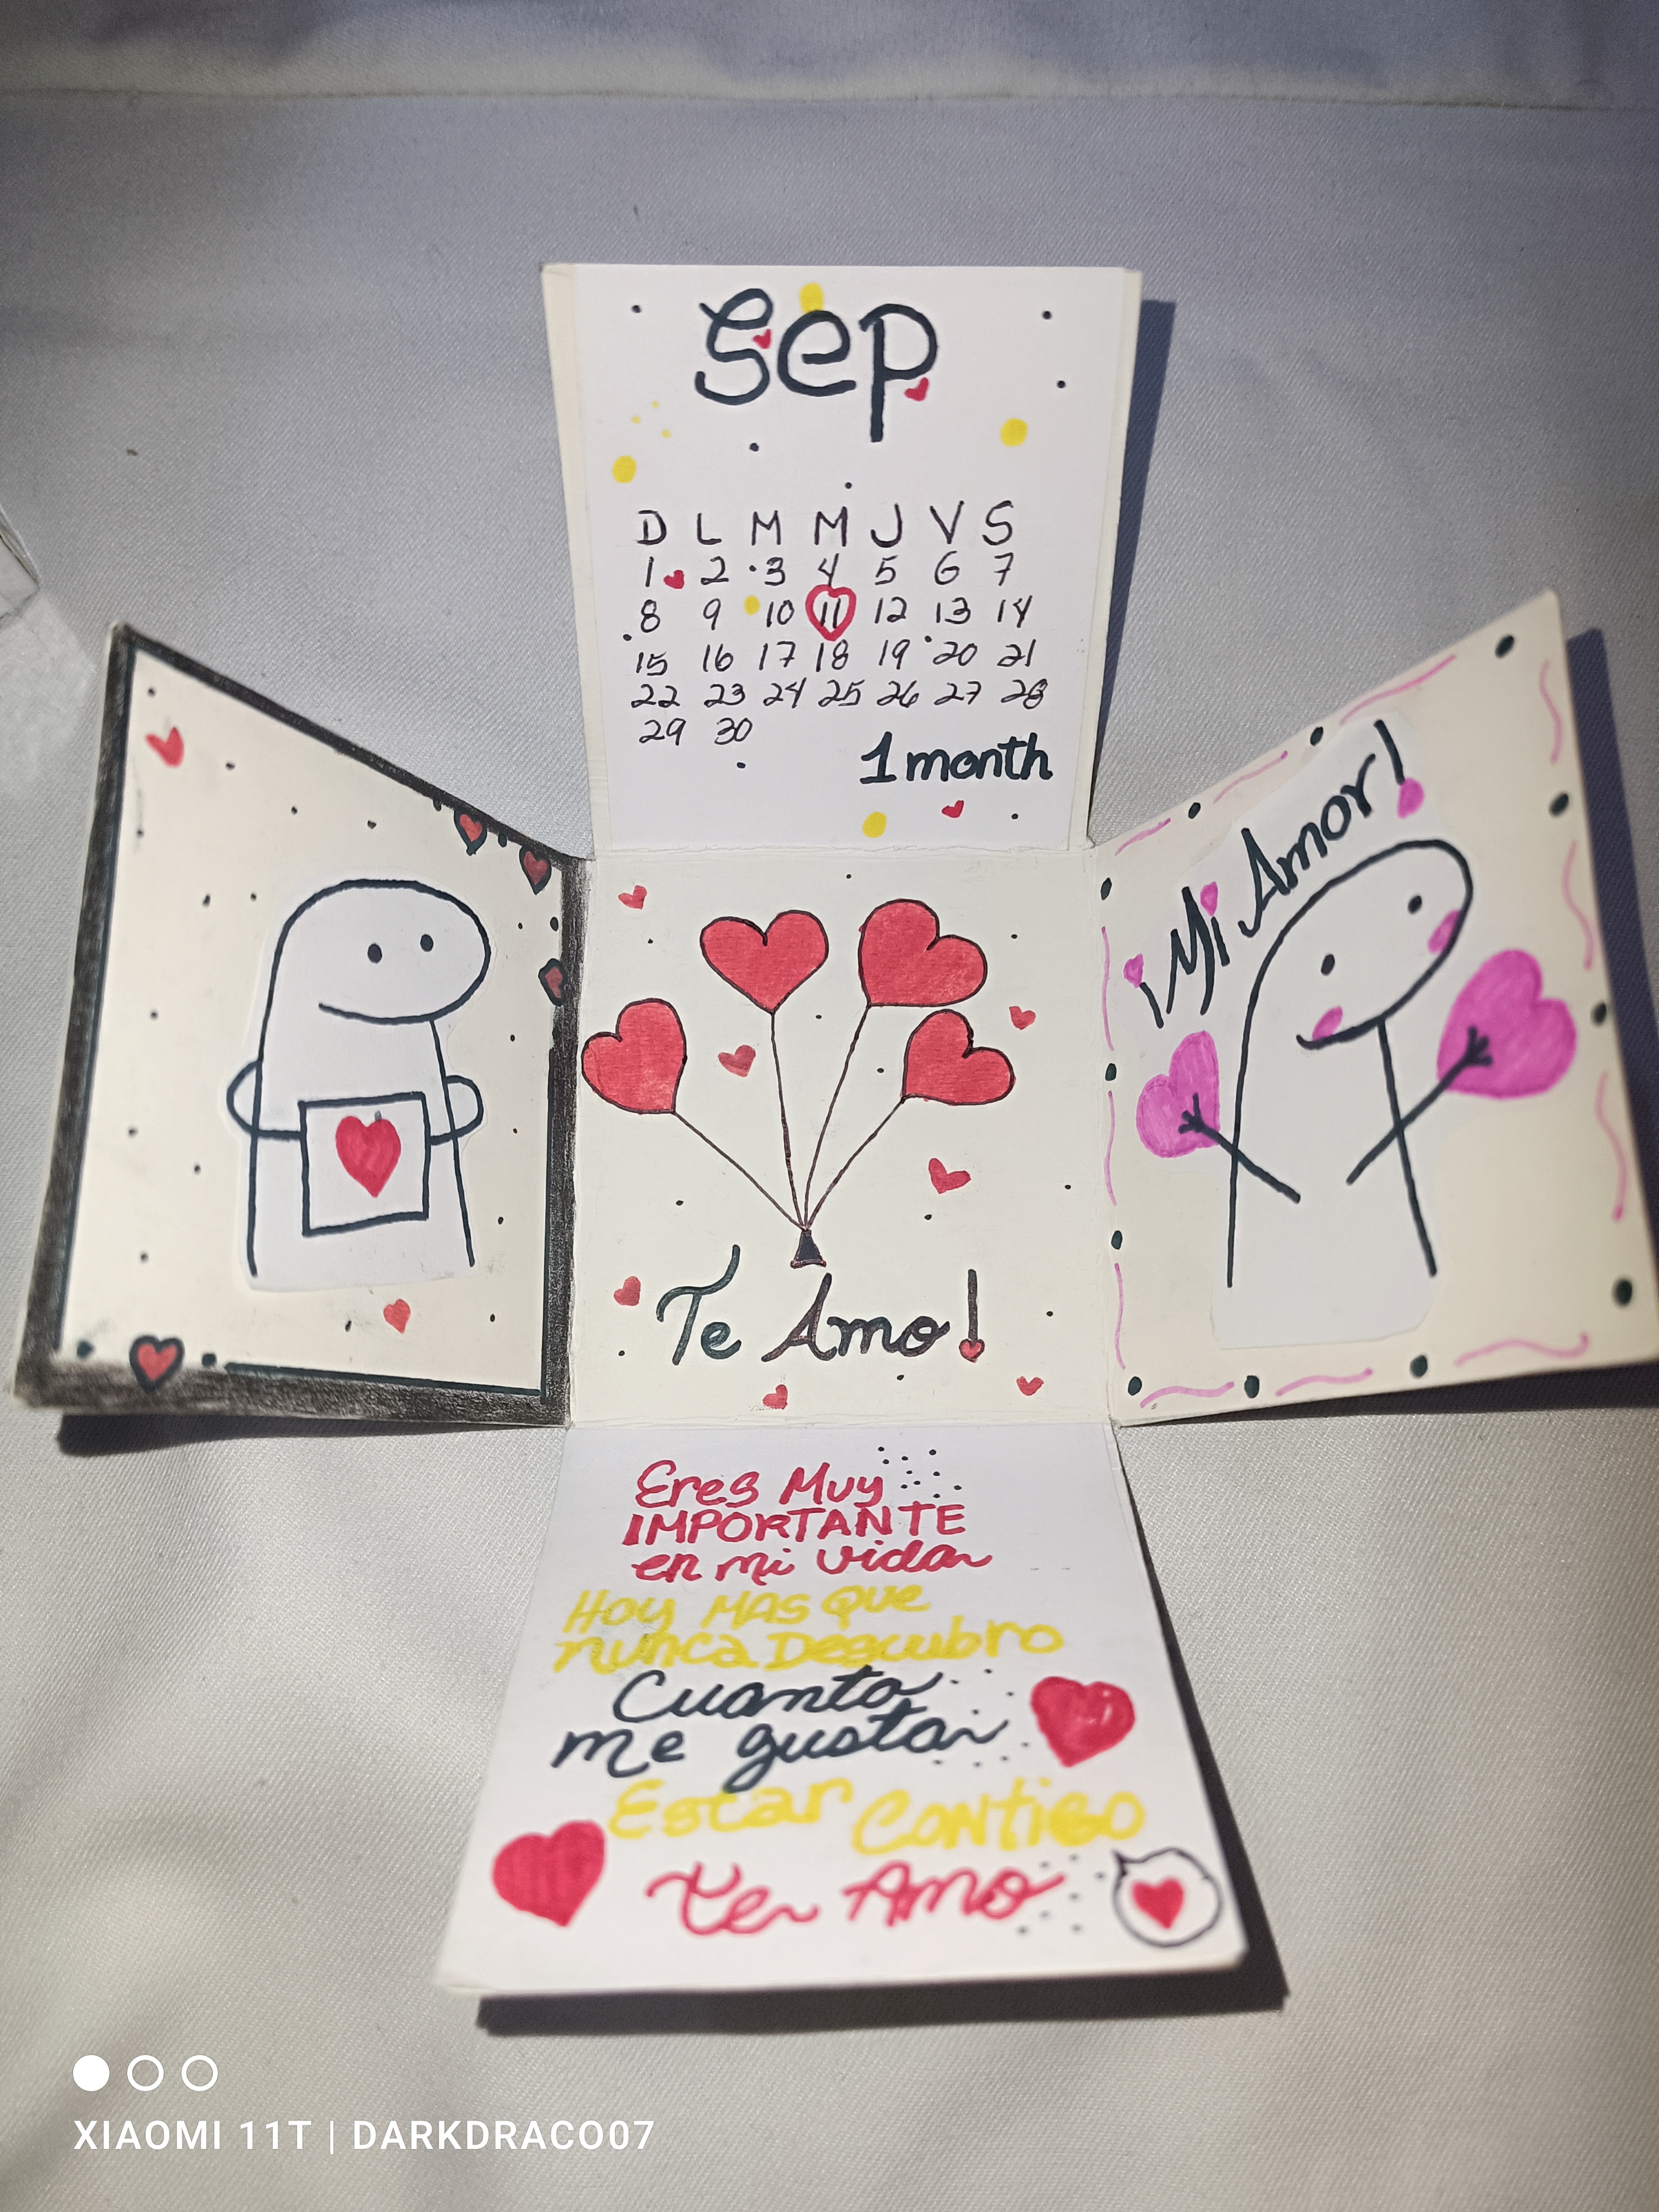 Sep
D L M M J V S
1 2 3 4 5 6 7
8 9 10 11 12 13 14
15 16 17 18 19 20 21
22 23 24 25 26 27 28
29 30
1 month
¡Mi Amor!
Te Amo!
Eres Muy
IMPORTANTE
en mi vida
Hoy MAS Que
nunca Descubro
Cuanto
me gusta
Estar Contigo
Te Amo
XIAOMI 11T | DARKDRACO07